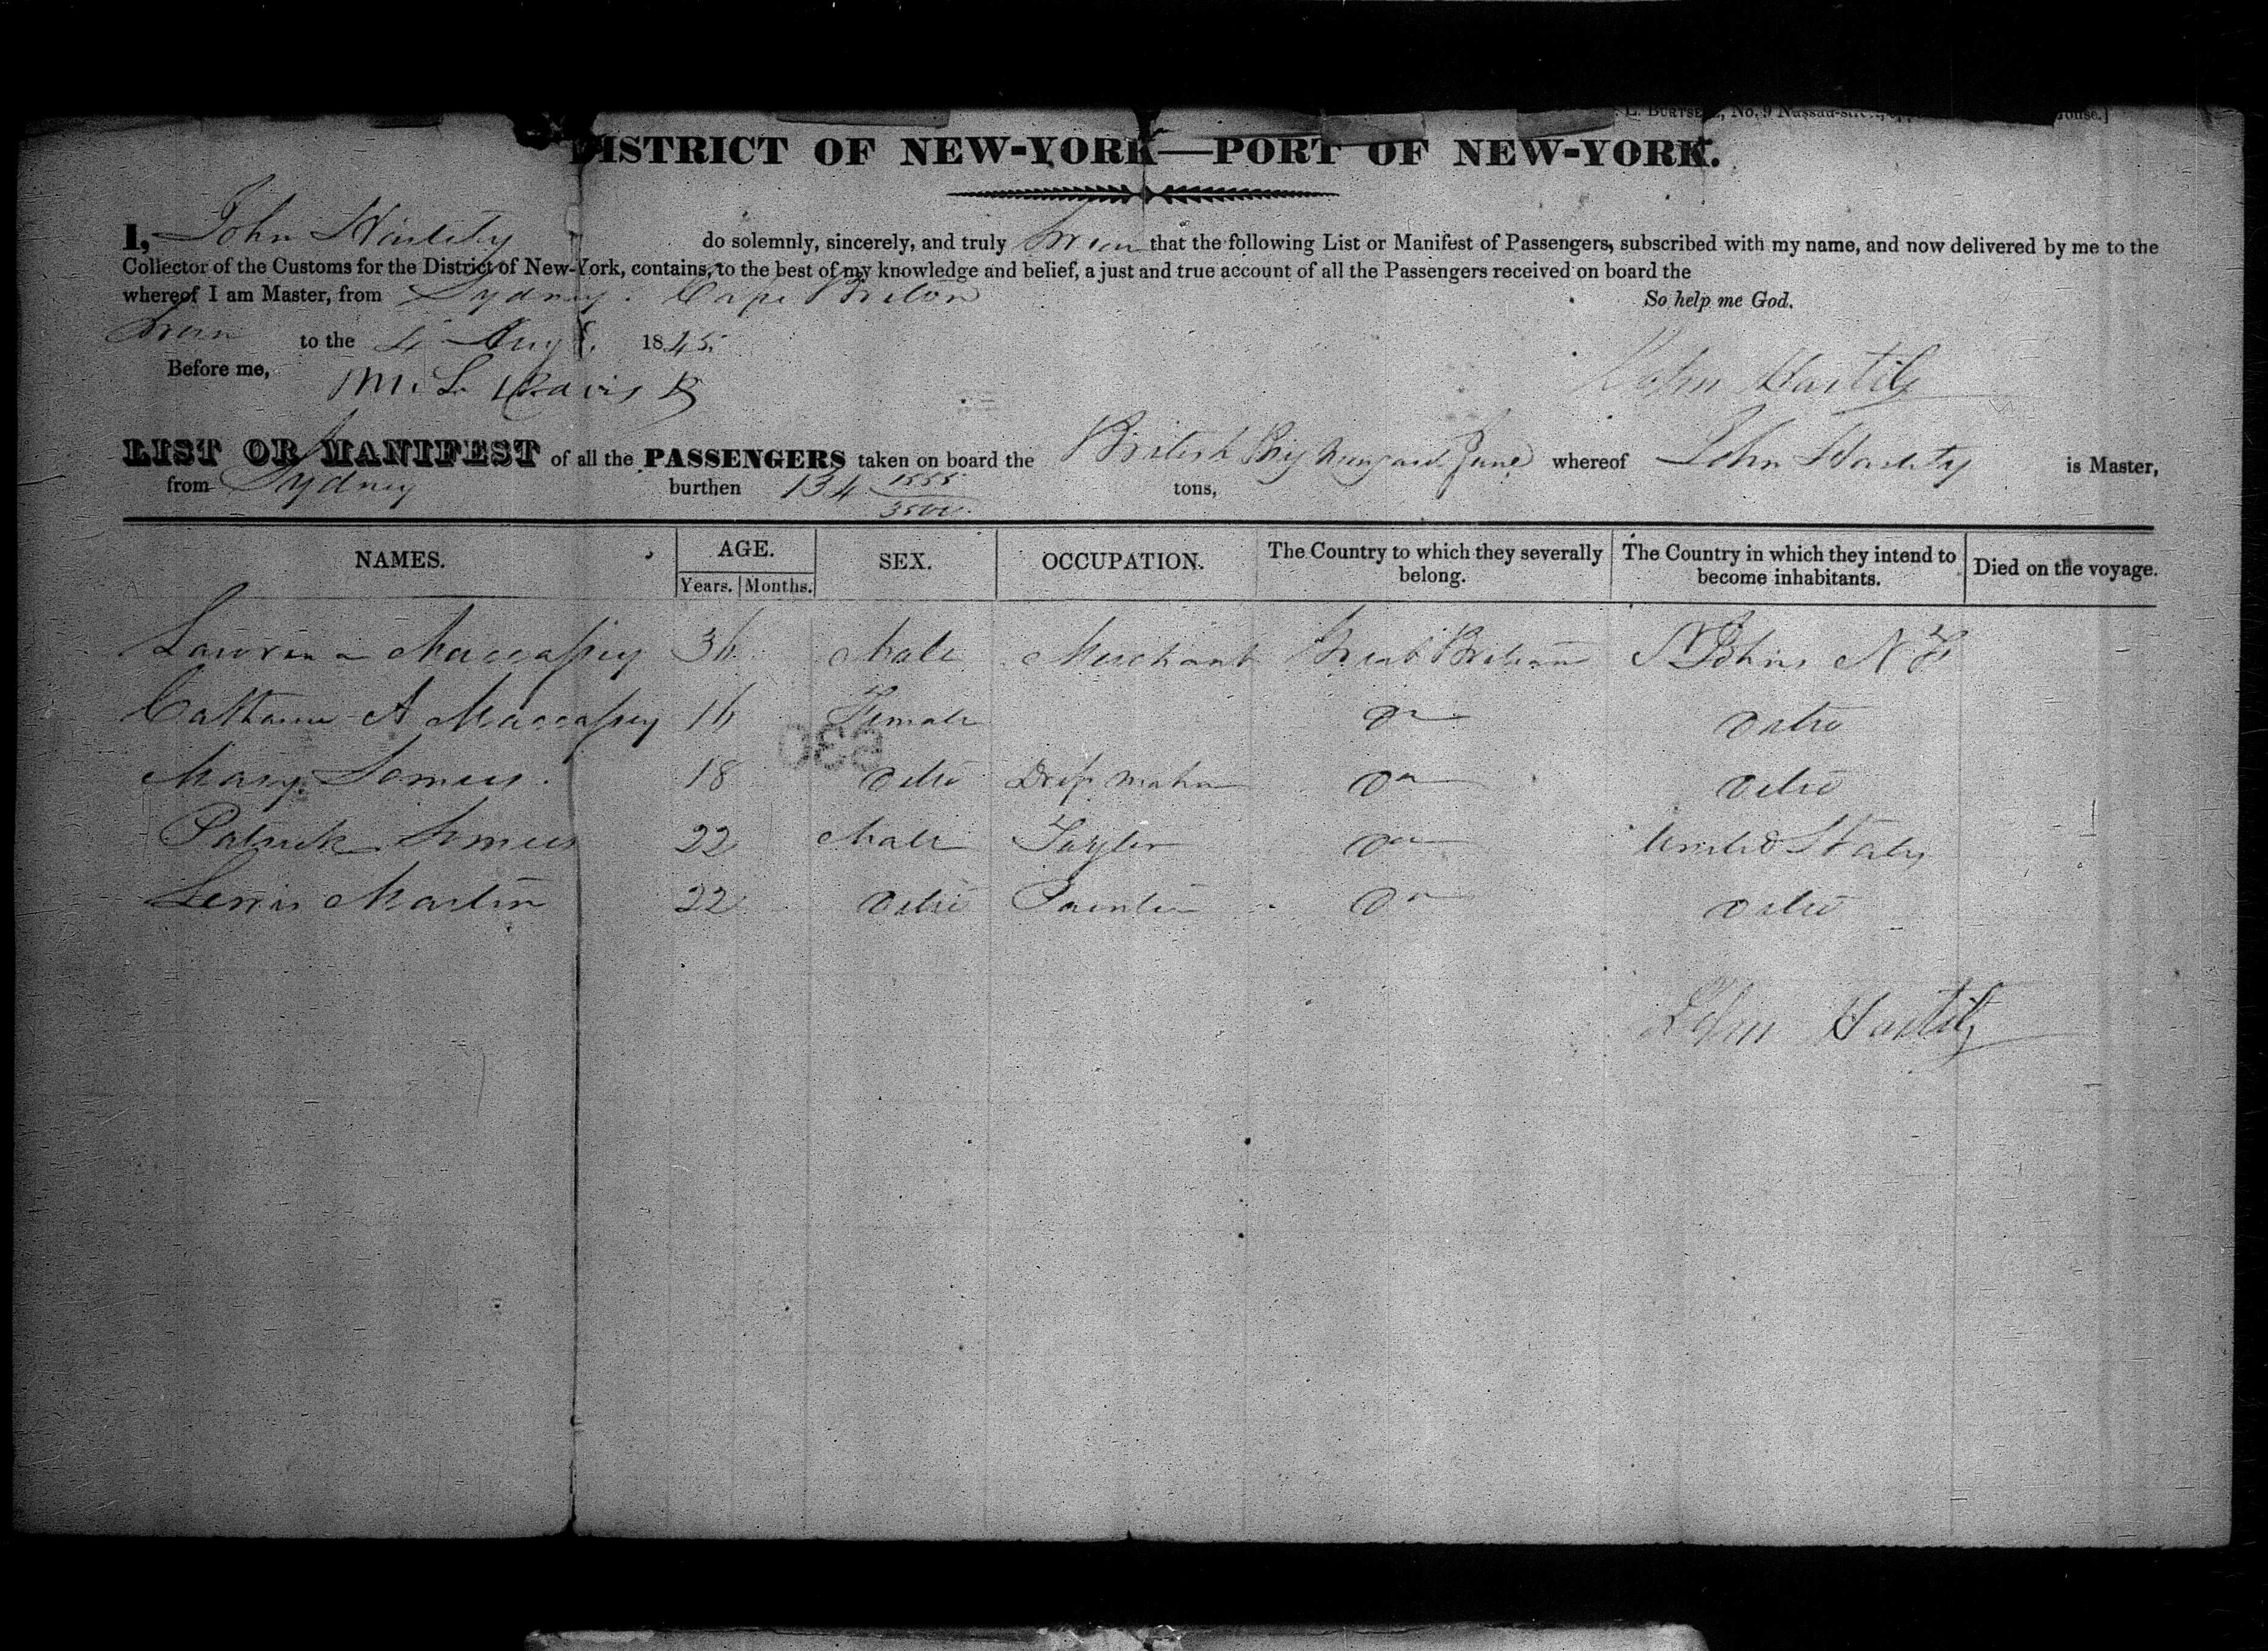 L. BURTSELL, No. 9 Nassau-st
DISTRICT OF NEW-YORK—PORT OF NEW-YORK.
I, John Hartity do solemnly, sincerely, and truly Swear that the following List or Manifest of Passengers, subscribed with my name, and now delivered by me to the
Collector of the Customs for the District of New-York, contains, to the best of my knowledge and belief, a just and true account of all the Passengers received on board the
whereof I am Master, from Sydney. Cape Breton So help me God.
Sworn to the 4 Augt. 1845.
Before me, M. L. Davis John Hartity
LIST OR MANIFEST of all the PASSENGERS taken on board the British Brig Jane whereof John Hartity is Master,
from Sydney burthen 134 1555/3500 tons,
NAMES. AGE. SEX. OCCUPATION. The Country to which they severally belong. The Country in which they intend to become inhabitants. Died on the voyage.
Years. Months.
36 Male Merchant Great Britain St Johns N F
Catharine A 16 Female Do Ditto
Mary Somers. 18 Ditto Dress maker Do Ditto
Patrick Somers 22 Male Taylor Do United States
Lewis Martin 22 Ditto Painter Do Ditto
530
John Hartity